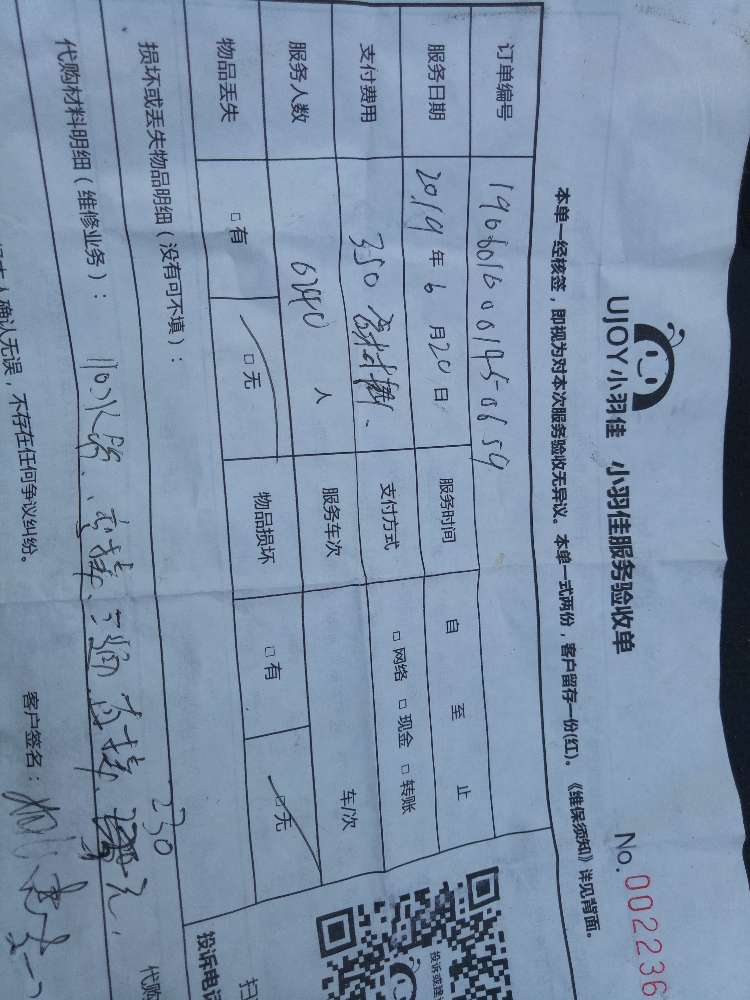 UJOY小羽佳 小羽佳服务验收单
No. 002236
本单一经核签，即视为对本次服务验收无异议。本单一式两份，客户留存一份(红)。《维保须知》详见背面。
订单编号
服务日期 2019 年 6 月 20 日 服务时间 自 至 止
支付费用 350 支付方式 □ 网络 □ 现金 □ 转账
服务人数 人 服务车次 车/次
物品丢失 □ 有 □ 无 物品损坏 □ 有 □ 无
损坏或丢失物品明细（没有可不填）：
代购材料明细（维修业务）： 直接 直接 230 元 代购
确认无误，不存在任何争议纠纷。 客户签名：
投诉或建
扫
投诉电